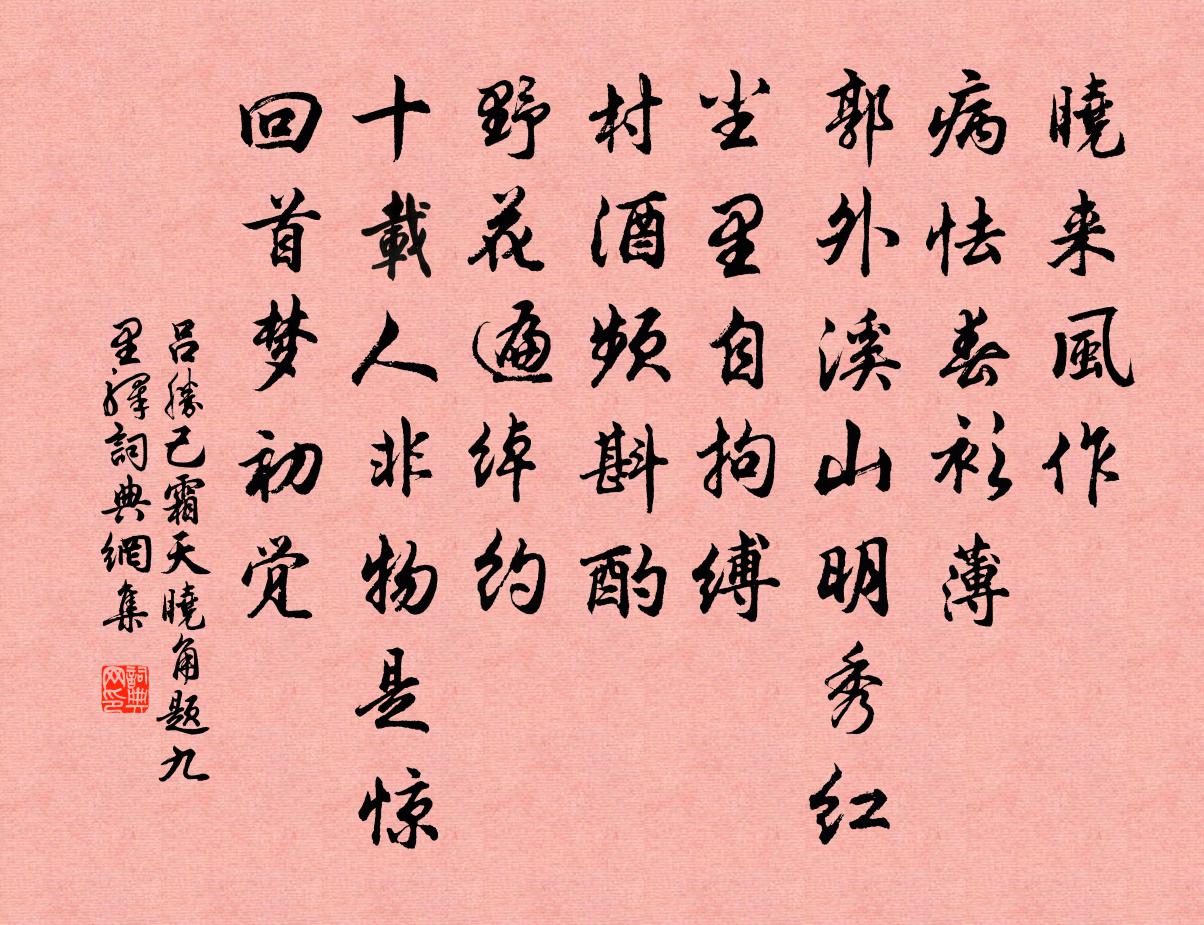 曉来風作
病怯春衫薄
郭外溪山明秀红
尘里自拘缚
村酒频斟酌
野花遍绰约
十載人非物是惊
回首梦初觉
吕勝己霜天曉角题九
里驛詞典網集
詞典
网印